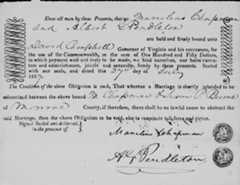 Know all men by these Presents, that we Manilius Chapman
and Albert G Pendleton
are held and firmly bound unto
David Campbell Governor of Virginia and his successors, for
the use of the Commonwealth, in the sum of One Hundred and Fifty Dollars,
to which payment well and truly to be made, we bind ourselves, our heirs, executors
and administrators, jointly and severally, firmly by these presents. Sealed
with our seals, and dated this 27th day of July
183
The Condition of the above Obligation is such, That whereas a Marriage is shortly intended to
be solemnized between the above bound M Chapman &
of Monroe County, if therefore, there shall be no lawful cause to obstruct the
said Marriage, then the above Obligation to be void, else to remain in full force and virtue.
Signed, sealed and delivered
in the presence of
Manilius Chapman
A G Pendleton